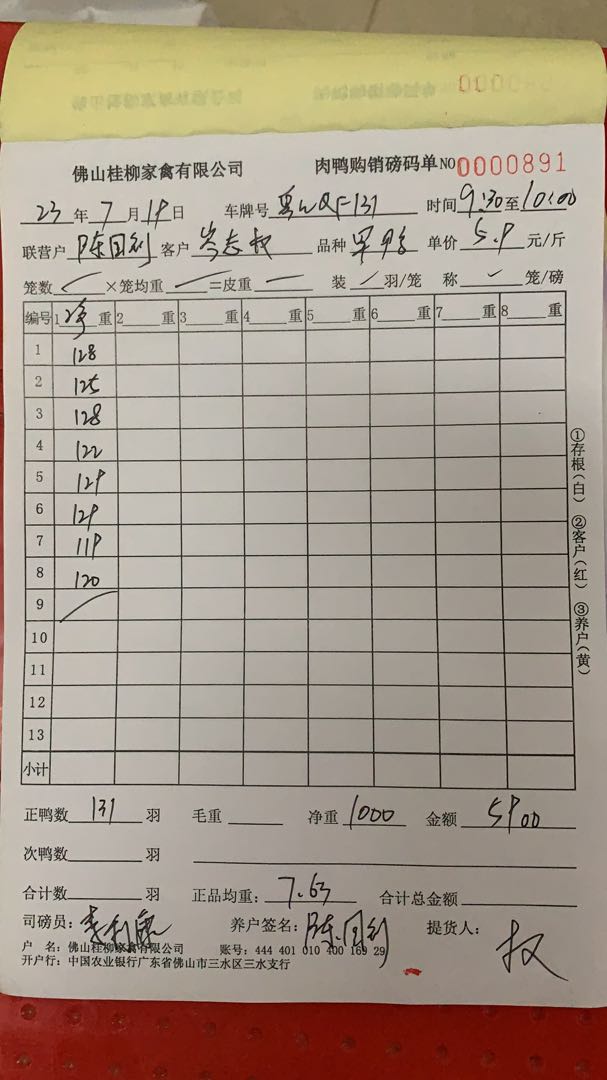 佛山桂柳家禽有限公司 肉鸭购销磅码单 NO 0000891
23 年 7 月 19 日 车牌号 时间 9:30 至 10:00
联营户 陈国利 客户 岑志权 品种 单价 5.9 元/斤
笼数 ×笼均重 =皮重 装 羽/笼 称 笼/磅
编号 1 净 重 2 重 3 重 4 重 5 重 6 重 7 重 8 重
1 128
2 125
3 128
4 122
5 129
6 129
7 119
8 120
9
10
11
12
13
小计
①存根(白) ②客户(红) ③养户(黄)
正鸭数 131 羽 毛重 净重 1000 金额 5900
次鸭数 羽
合计数 羽 正品均重: 7.63 合计总金额
司磅员: 养户签名: 陈国利 提货人: 权
户 名: 佛山桂柳家禽有限公司 账号: 444 401 010 400 169 29
开户行: 中国农业银行广东省佛山市三水区三水支行